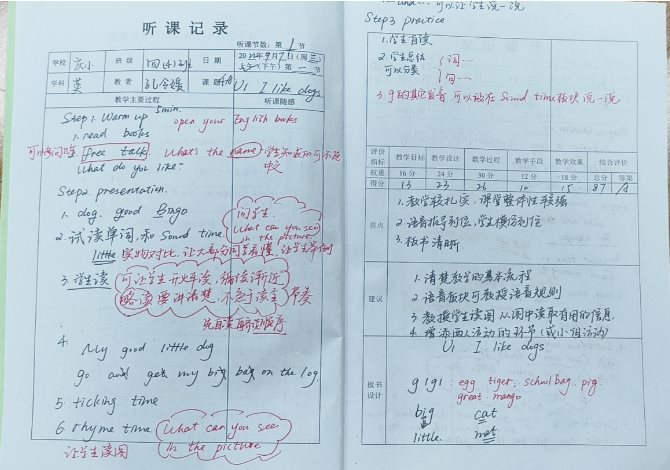 听课记录
听课节数：第 1 节
学校 班级 四(4)班 日期 2022年9月7日（周三）
上午（下午）第一节
学科 英 教者 课题 U1 I like dogs
教学主要过程 听课随感
Step1. Warm up 5min.
1. read books open your English books
free talk what's the name
What do you like?
Step2. presentation.
1. dog. good Bingo
问学生
What can you see
in the picture
2. 试读单词，和 Sound time
little 实物对比，让大部分同学看懂，让学生举例
3. 学生读
可让学生开火车读，循序渐近
4. My good little dog
go and get my big bag on the log.
5. ticking time
6. rhyme time
What can you see
in the picture
让学生读图
可以让学生说一说
Step3 practice
1. 学生自读
2. 学生总结
可以分类
词…
句…
3. g的其它发音，可以放在 Sound time 板块说一说
评价指标 教学目标 教学设计 教学过程 教学手段 教学效果 综合评价
权重 16分 24分 30分 12分 18分 总分 等第
得分 13 23 26 10 15 87 A
亮点
1. 教学较扎实，课堂整体性较强
2. 语音指导到位，学生模仿到位
3. 板书清晰
建议
1. 清楚教学的基本流程
2. 语音板块可教授语音规则
3. 教授学生读图，从图中读取有用的信息
4. 增添两人活动的环节（或小组活动）
板书设计
U1 I like dogs
g /g/: egg tiger. schoolbag. pig.
great. mango.
big cat
little. mat